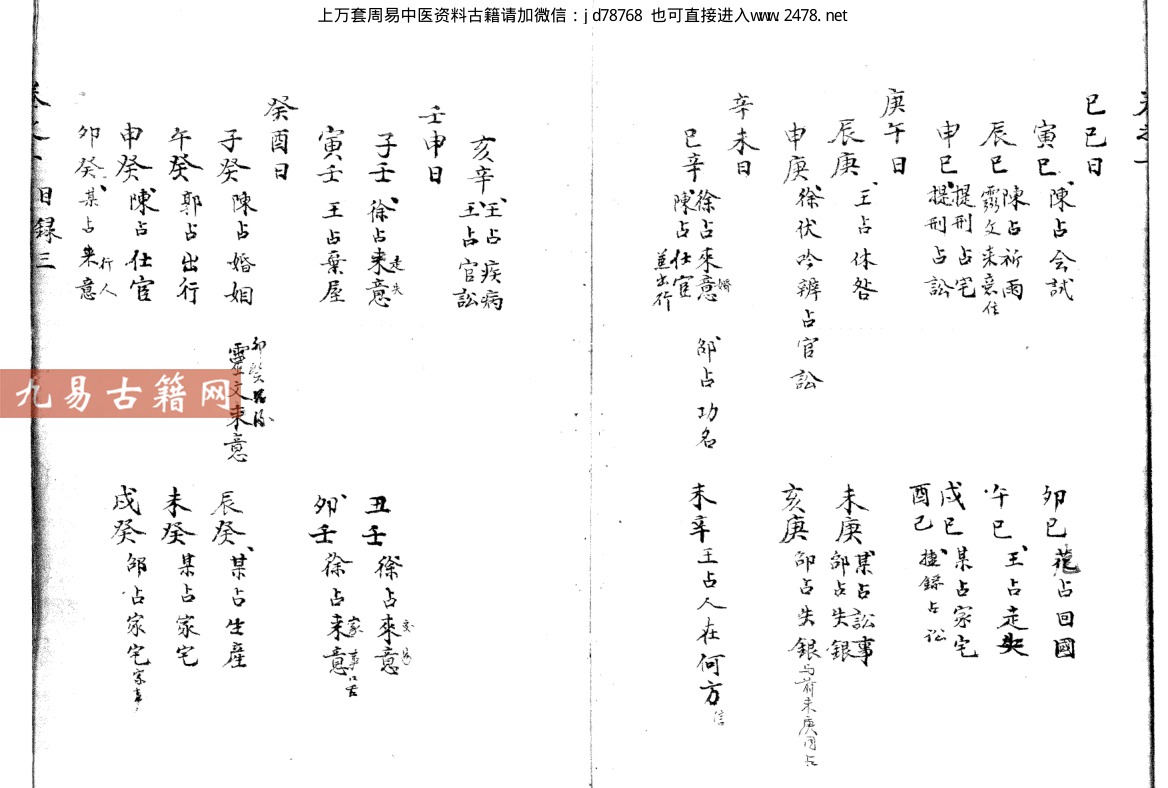 上万套周易中医资料古籍请加微信：jd78768 也可直接进入www.2478.net
己巳日
寅巳 陳占会試
卯巳 范占回國
辰巳 陳占祈雨
靈文来意
午巳 王占走失
申巳 提刑占宅
提刑占訟
戌巳 某占家宅
酉己 捷録占讼
庚午日
辰庚 王占休咎
未庚 某占訟事
邵占失銀
申庚 徐伏吟辨占官訟
亥庚 邵占失銀 与前未庚同占
辛未日
巳辛 徐占來意 婚
陳占仕宦 並出行
邵占功名
未辛 王占人在何方 信
亥辛 王占疾病
王占官訟
壬申日
子壬 徐占来意 走失
丑壬 徐占來意
寅壬 王占葉屋
卯壬 徐占来意 家事口舌
癸酉日
子癸 陳占婚姻
靈文来意
辰癸 某占生産
午癸 郭占出行
未癸 某占家宅
申癸 陳占仕宦
戌癸 邵占家宅 家事
卯癸 某占来意 行人
目録三
九易古籍网